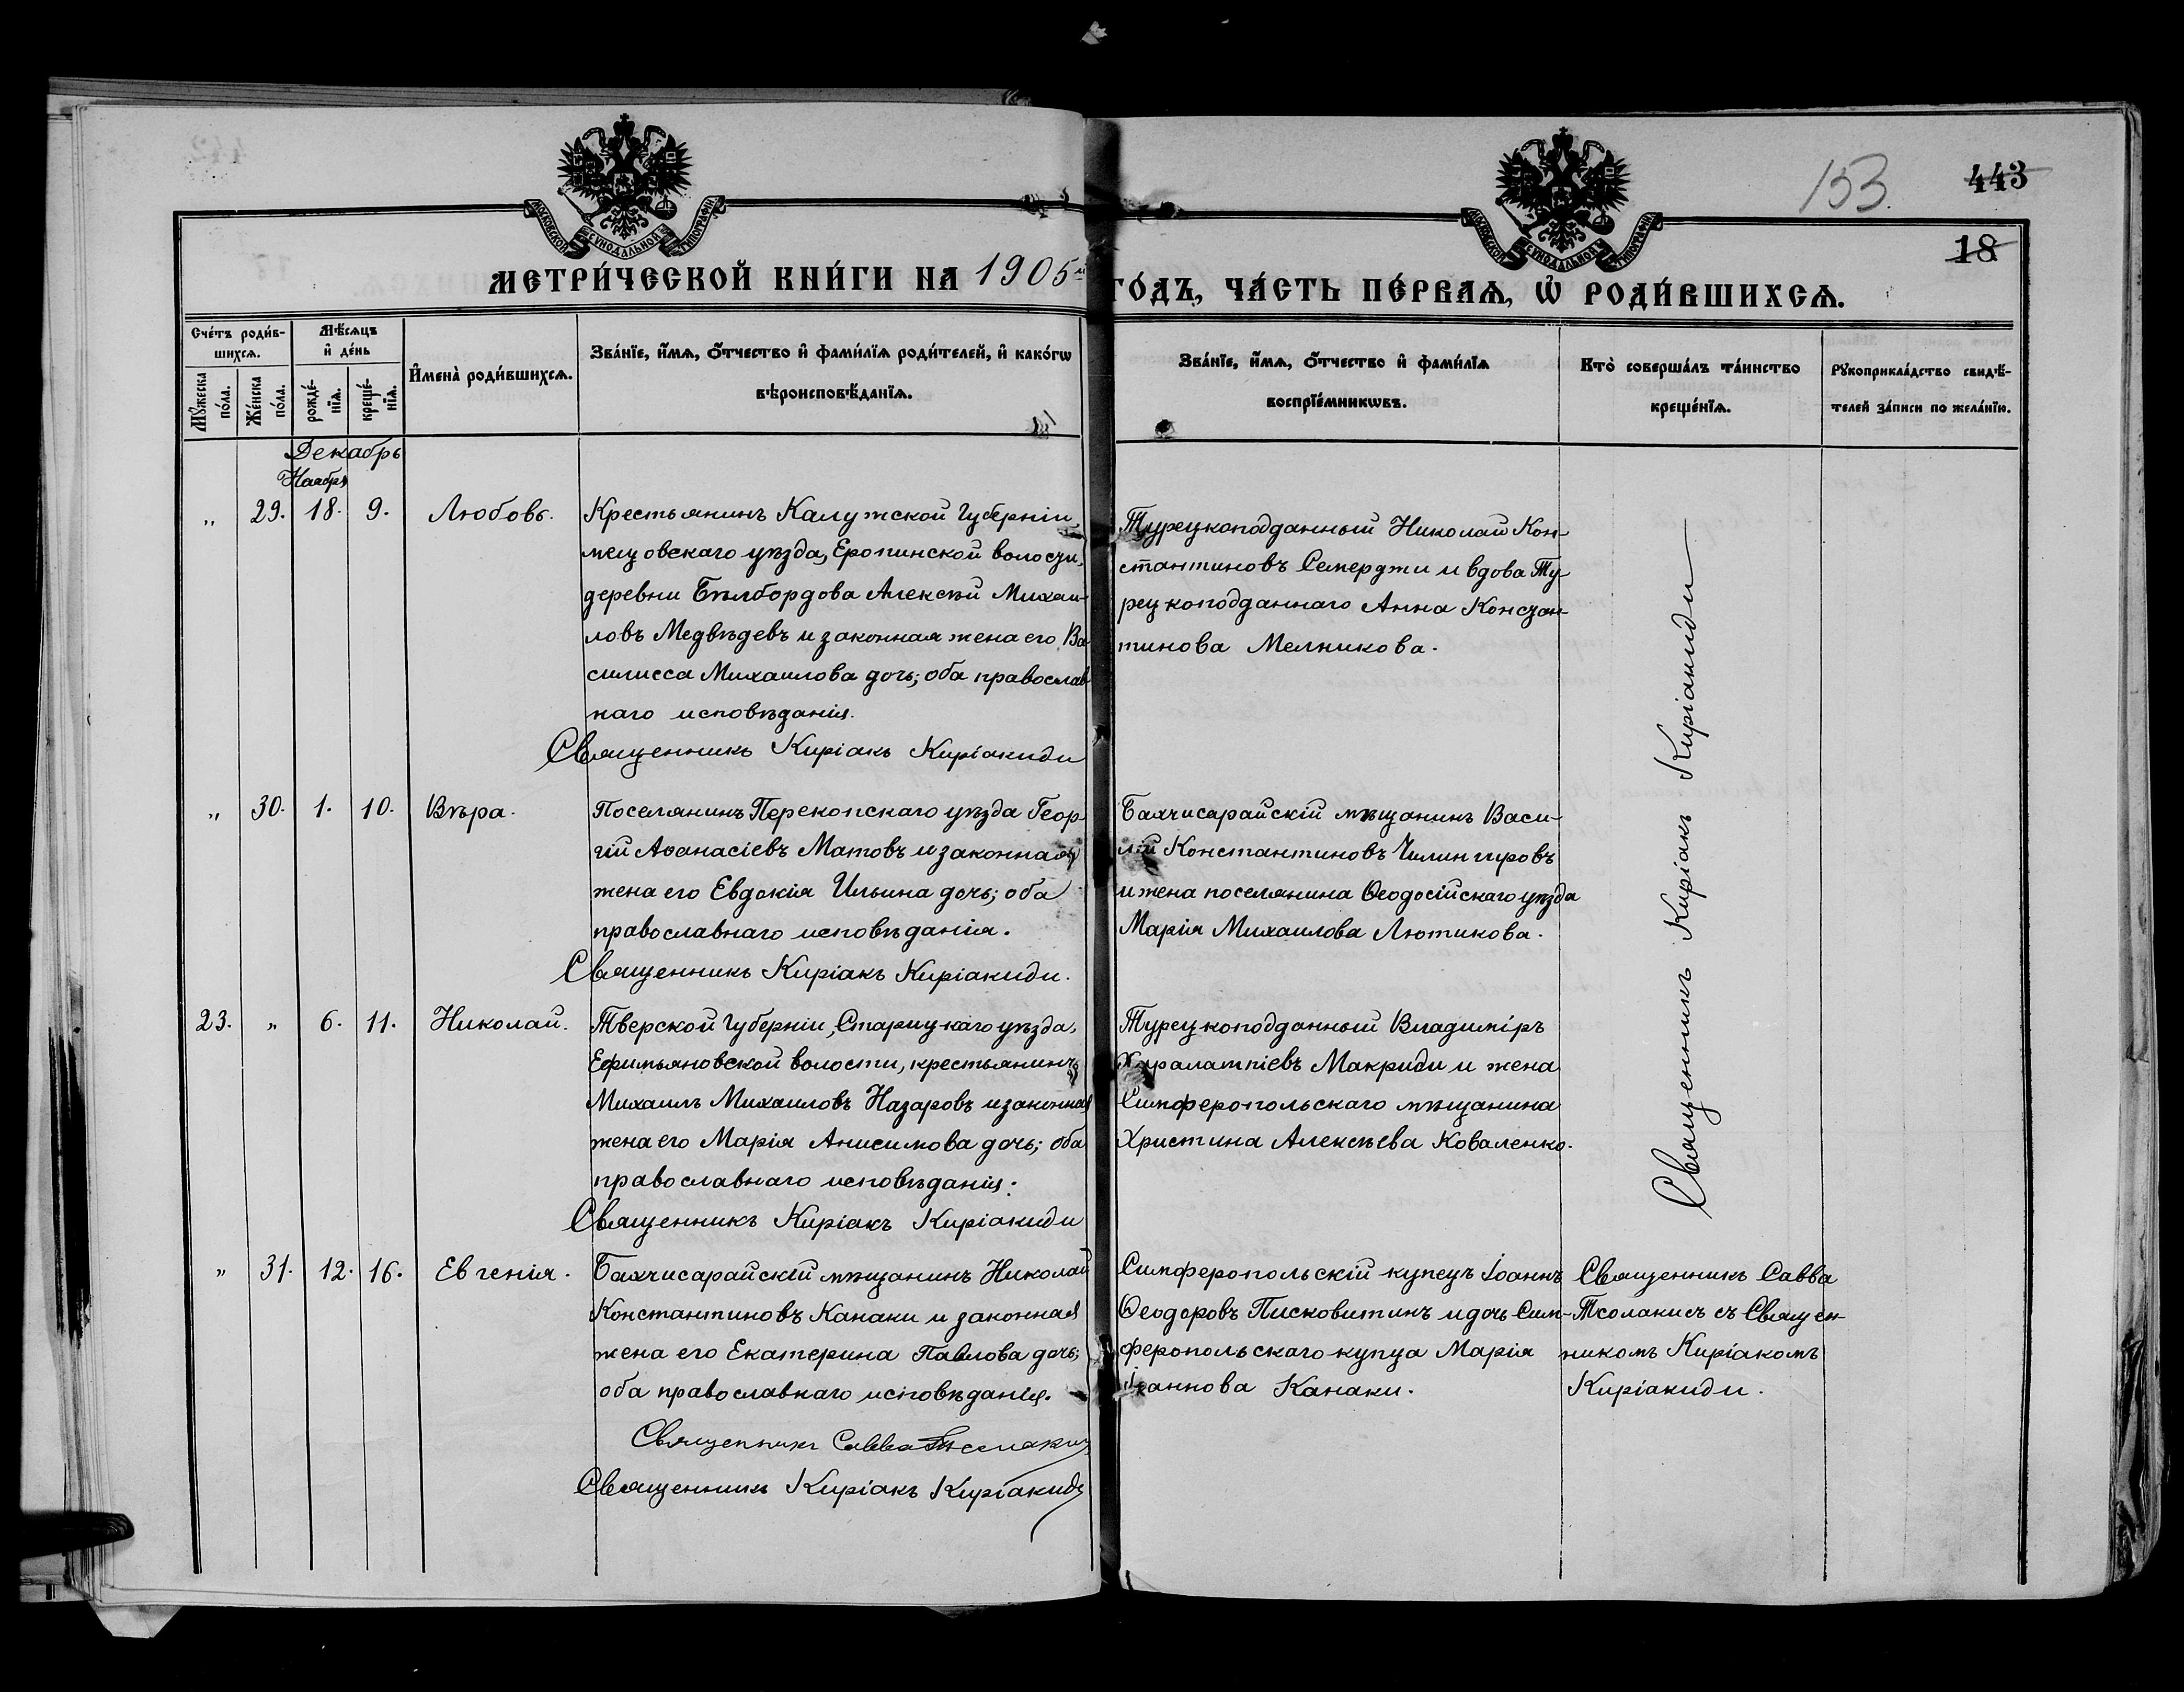 153.
443
18
МОСКОВСКОЙ СѴНОДАЛЬНОЙ ТИПОГРАФІИ
МОСКОВСКОЙ СѴНОДАЛЬНОЙ ТИПОГРАФІИ
МЕТРИ́ЧЕСКОЙ КНИ́ГИ НА 1905й ГО́ДЪ, ЧА́СТЬ ПЕ́РВАѦ, Ѡ҆ РОДИ́ВШИХСѦ.
Сче́тъ роди́в-
шихсѧ.
Мꙋ́жеска
по́ла.
Же́нска
по́ла.
Мѣ́сѧцъ
и҆ де́нь
рожде́-
нїѧ.
креще́-
нїѧ.
И҆мена̀ роди́вшихсѧ.
Зва́нїе, и҆́мѧ, ѻ҆́тчество и҆ фами́лїѧ роди́телей, и҆ како́гѡ
вѣроисповѣ́данїѧ.
Зва́нїе, и҆́мѧ, ѻ҆́тчество и҆ фами́лїѧ
воспрїе́мникѡвъ.
Кто̀ соверша́лъ та́инство
креще́нїѧ.
Рꙋкоприкла́дство свидѣ́-
телей за́писи по жела́нїю.
Декабрь
Ноябрь
„ 29. 18. 9. Любовь.
Крестьянинъ Калужской губерніи,
мещовскаго уѣзда, Еропинской волости,
деревни Бѣлбордова Алексѣй Михаи-
ловъ Медвѣдевъ и законная жена его Ва-
силисса Михаилова дочь; оба православ
наго исповѣданія.
Священникъ Киріакъ Киріакиди
Турецкоподданный Николай Кон-
стантиновъ Семерджи и вдова Ту-
рецкоподданнаго Анна Констан-
тинова Мелникова.
Священникъ Киріакъ Киріакиди
„ 30. 1. 10. Вѣра.
Поселянинъ Перекопскаго уѣзда Геор-
гій Аѳанасіевъ Матовъ и законная
жена его Евдокія Ильина дочь; оба
православнаго исповѣданія.
Священникъ Киріакъ Киріакиди.
Бахчисарайскій мѣщанинъ Васи-
лій Константиновъ Чилингировъ
и жена поселянина Ѳеодосійскаго уѣзда
Марія Михаилова Лютикова.
23. „ 6. 11. Николай.
Тверской губерніи, Старицкаго уѣзда,
Ефимьяновской волости, крестьянинъ
Михаилъ Михаиловъ Назаровъ и законная
жена его Марія Анисимова дочь; оба
православнаго исповѣданія.
Священникъ Киріакъ Киріакиди
Турецкоподданный Владиміръ
Харалампіевъ Макриди и жена
Симферопольскаго мѣщанина
Христина Алексѣева Коваленко.
„ 31. 12. 16. Евгенія.
Бахчисарайскій мѣщанинъ Николай
Константиновъ Канаки и законная
жена его Екатерина Павлова дочь;
оба православнаго исповѣданія.
Священникъ Савва Тсолакисъ
Священникъ Киріакъ Киріакиди
Симферопольскій купецъ Іоаннъ
Ѳеодоровъ Писковитинъ и дочь Сим-
феропольскаго купца Марія
Іоаннова Канаки.
Священникъ Савва
Тсолакисъ съ Священ-
никомъ Киріакомъ
Киріакиди.